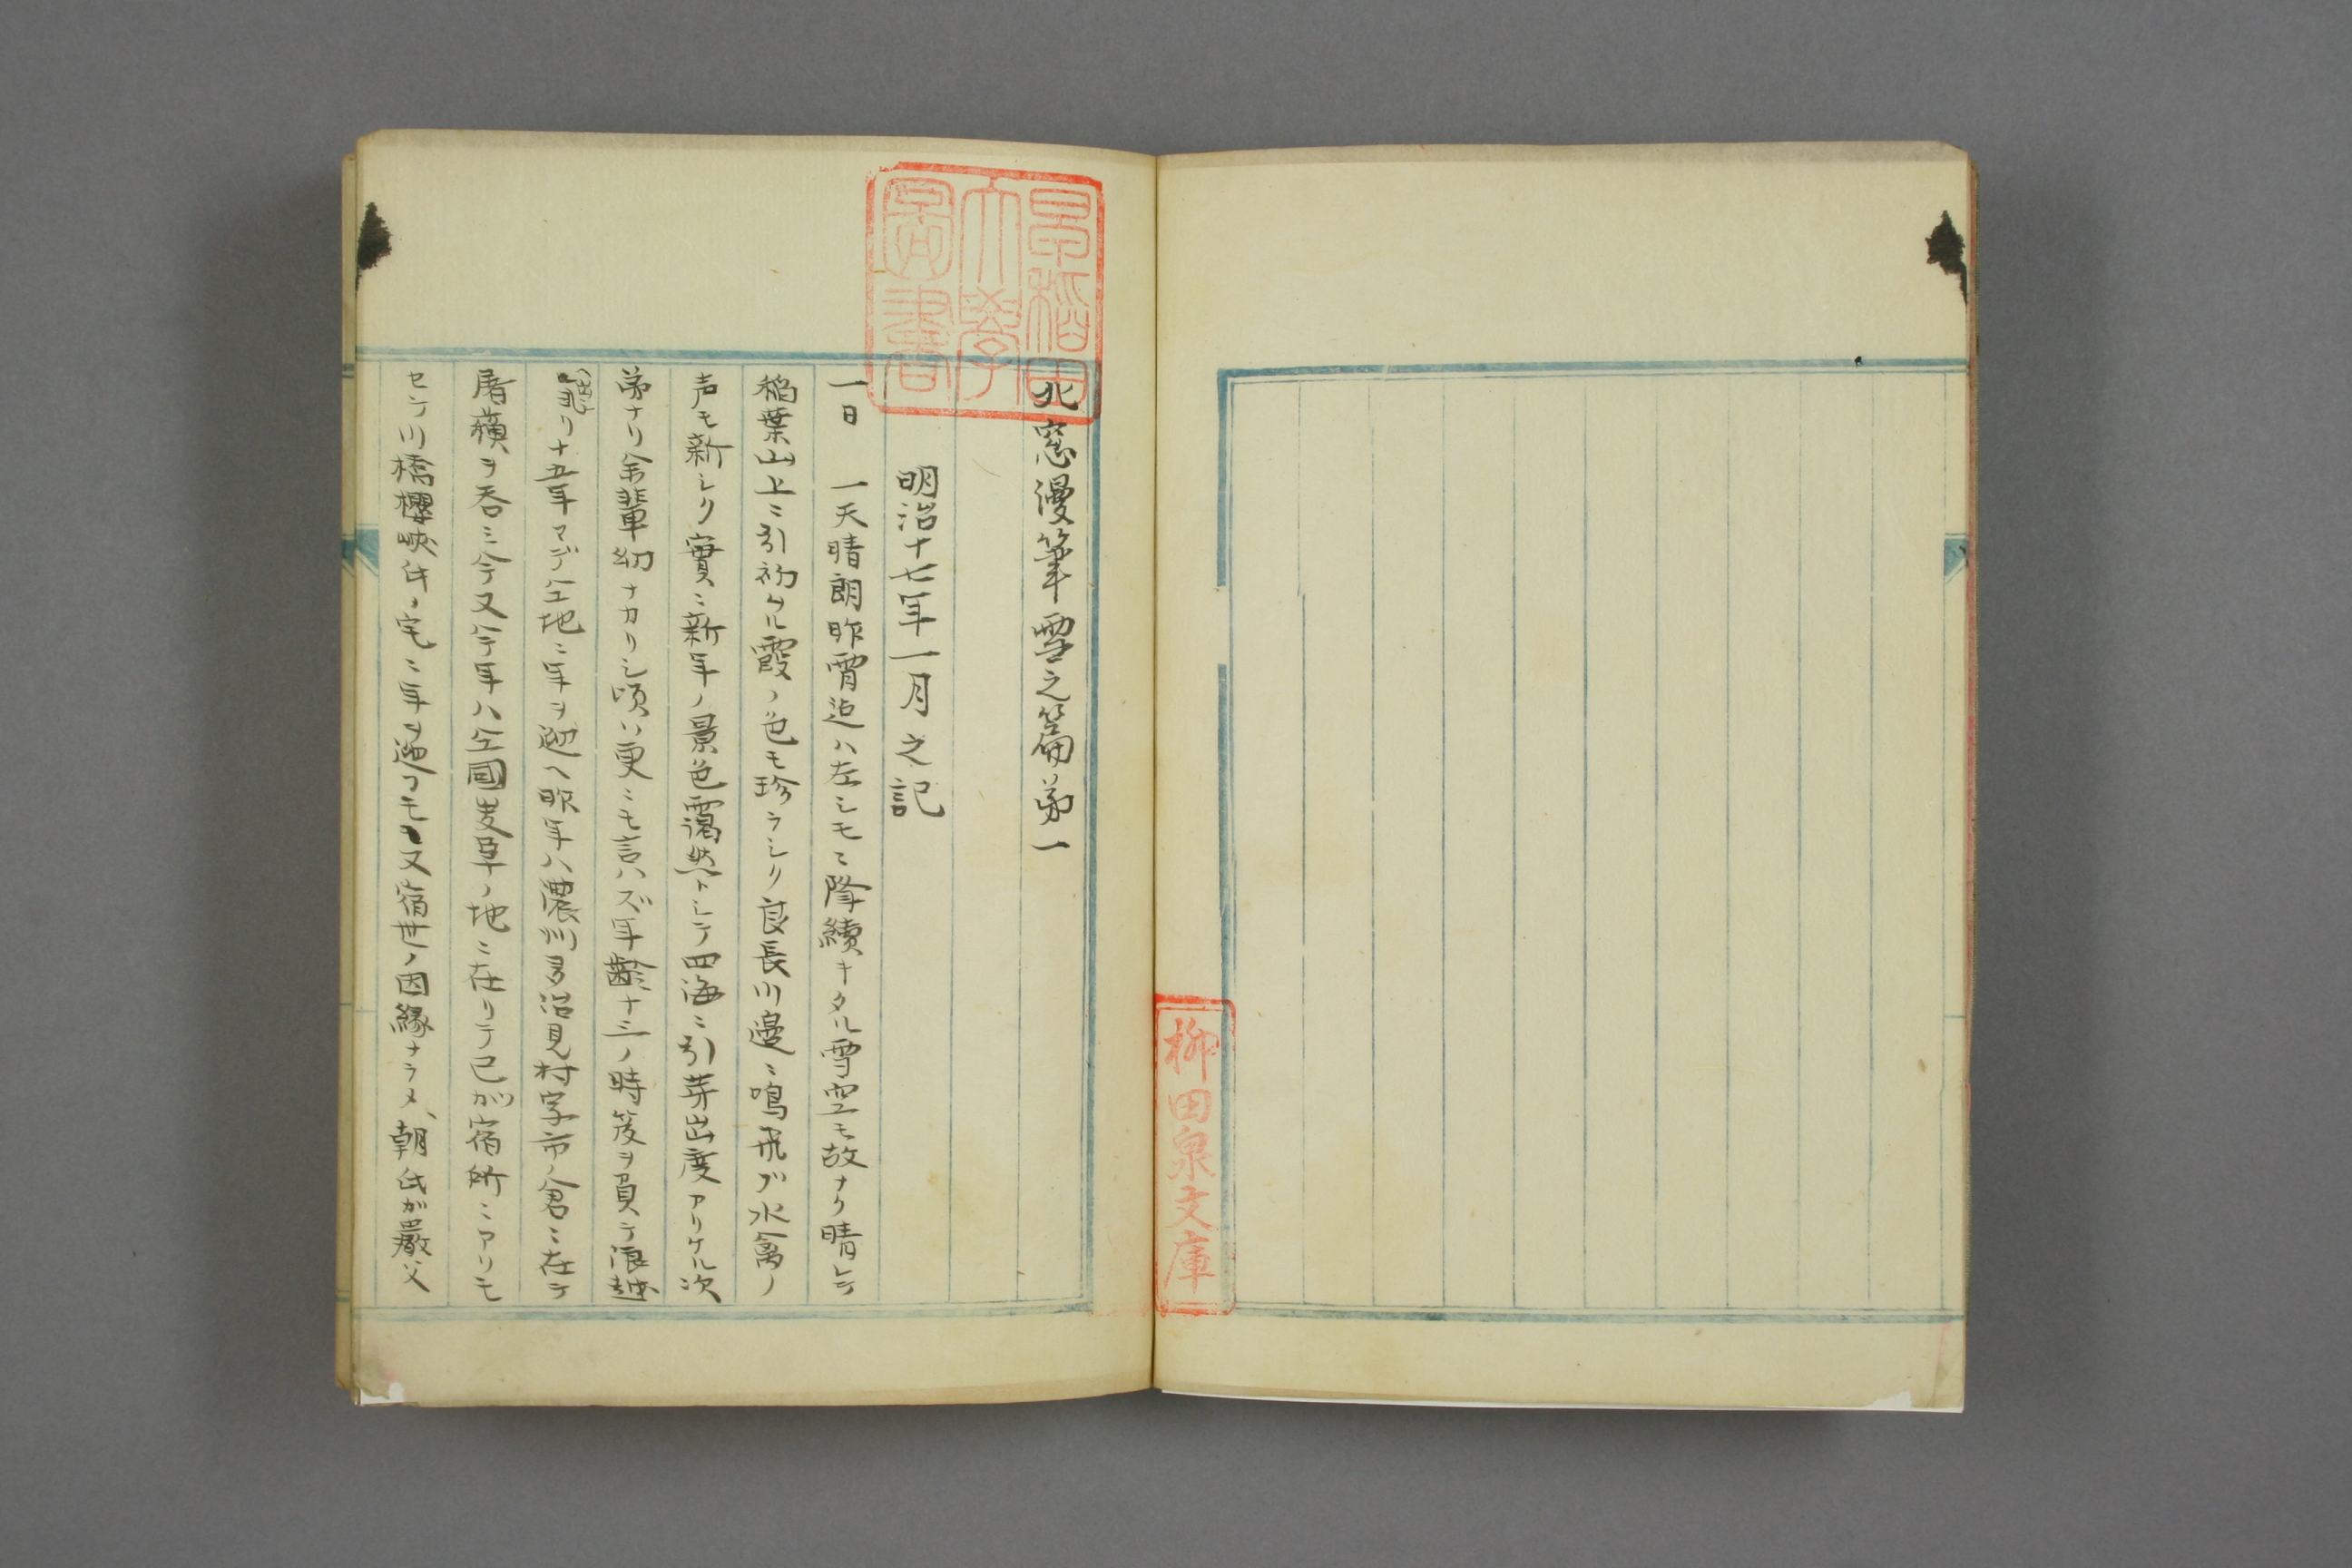 早稲田
大學
圖書
柳田泉文庫
北窓漫筆 雪之篇第一
明治十七年一月之記
一日 一天晴朗昨宵迄ハ左シモニ降續キタル雪空モ故ナク晴レテ
稲葉山上ニ引初ケル霞ノ色モ珍ラシク良長川邉ニ鳴飛ブ水禽ノ
声モ新シク實ニ新年ノ景色靄然トシテ四海ニ引芽出度アリケル次
第ナリ余輩幼ナカリシ頃ハ更ニモ言ハズ年齢十三ノ時笈ヲ負テ
リ十五年マデ仝地ニ年ヲ迎ヘ昨年ハ濃州多治見村字市ノ倉ニ在テ
屠蘓ヲ呑ミ今又今年ハ仝國岐阜ノ地ニ在リテ己ガ宿所ニアリモ
セデ川橋櫻峽氏ノ宅ニ年ヲ迎フモ又宿世ノ因縁ナラメ、朝氏ガ嚴父